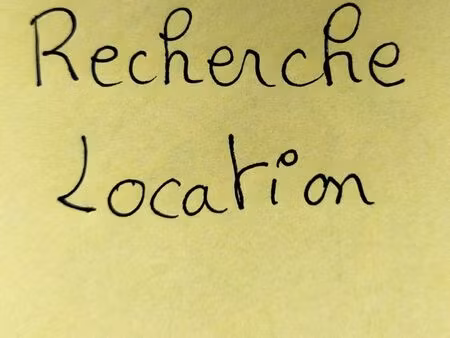 Recherche
Location